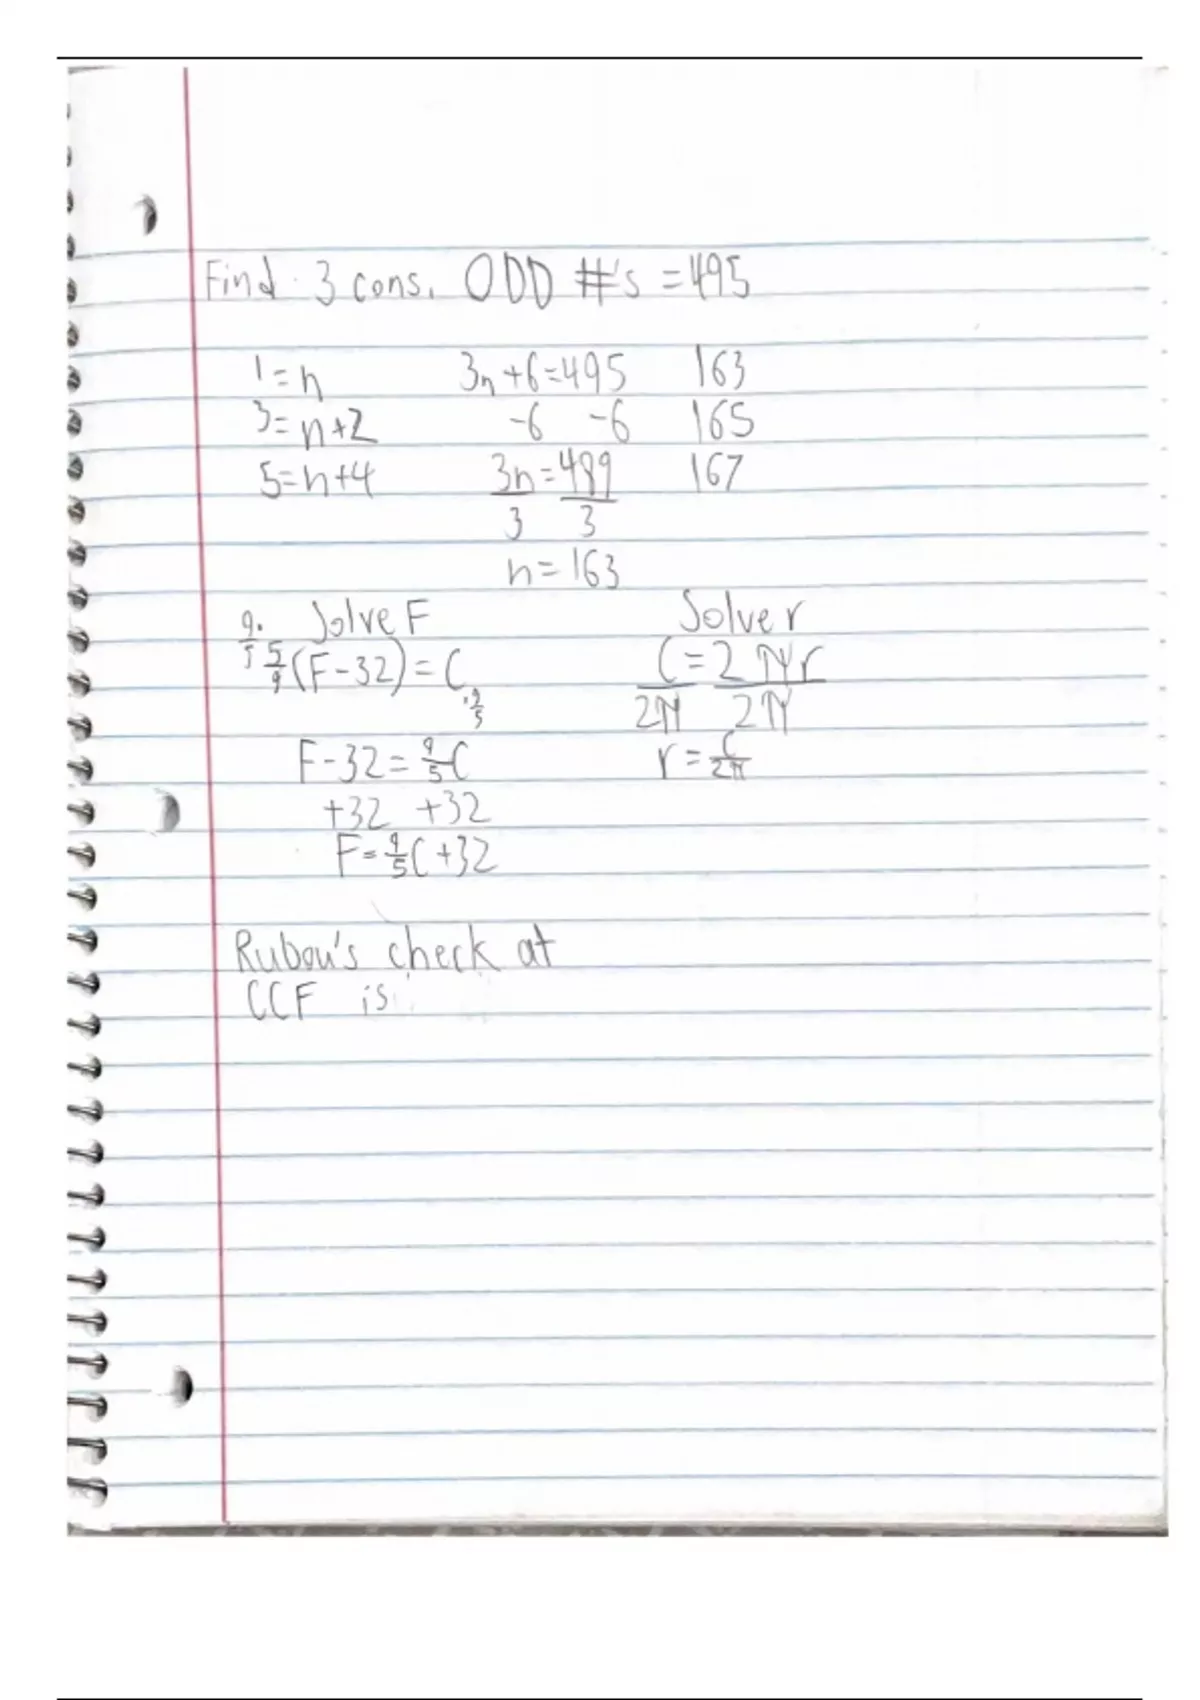 Find 3 cons. ODD #'s = 495
1 = n
3 = n+2
5 = n+4
3n + 6 = 495
-6 -6
3n = 489
3 3
n = 163
163
165
167
Solve F
9/5 · 5/9 (F - 32) = C · 9/5
F - 32 = 9/5 C
+32 +32
F = 9/5 C + 32
Solve r
C = 2πr
2π 2π
r = C/2π
check at
CCF is